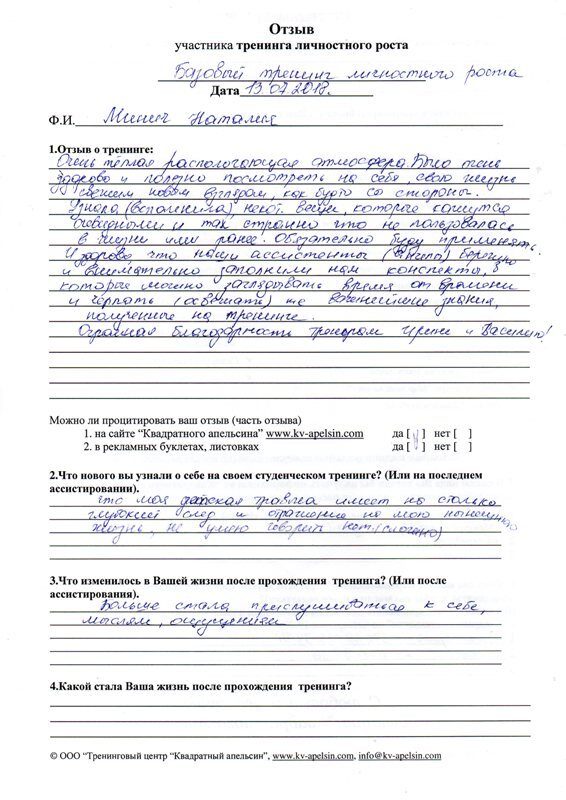 Отзыв
участника тренинга личностного роста
Базовый тренинг личностного роста
Дата 13.07.2018.
Ф.И. Минич Наталия
1.Отзыв о тренинге:
Очень тёплая располагающая атмосфера. Было очень
здорово и полезно посмотреть на себя, свою жизнь
свежим новым взглядом, как будто со стороны.
Узнала (вспомнила) некот. вещи, которые кажутся
очевидными и так странно что не пользовалась
в жизни ими ранее. Обязательно буду применять.
И здорово, что наши ассистенты бережно
и внимательно заполнили нам конспекты, в
которые можно заглядывать время от времени
и черпать (освежать) те важнейшие знания,
полученные на тренинге.
Огромная благодарность тренерам Ирине и Василию!
Можно ли процитировать ваш отзыв (часть отзыва)
1. на сайте “Квадратного апельсина” www.kv-apelsin.com да [ ] нет [ ]
2. в рекламных буклетах, листовках да [ ] нет [ ]
2.Что нового вы узнали о себе на своем студенческом тренинге? (Или на последнем
ассистировании).
что моя детская травма имеет на столько
глубокий след и отражение на мою нынешнюю
жизнь, не умею говорить нет (сложно)
3.Что изменилось в Вашей жизни после прохождения тренинга? (Или после
ассистирования).
Больше стала прислушиваться к себе,
мыслям, ощущениям
4.Какой стала Ваша жизнь после прохождения тренинга?
© ООО “Тренинговый центр “Квадратный апельсин”, www.kv-apelsin.com, info@kv-apelsin.com